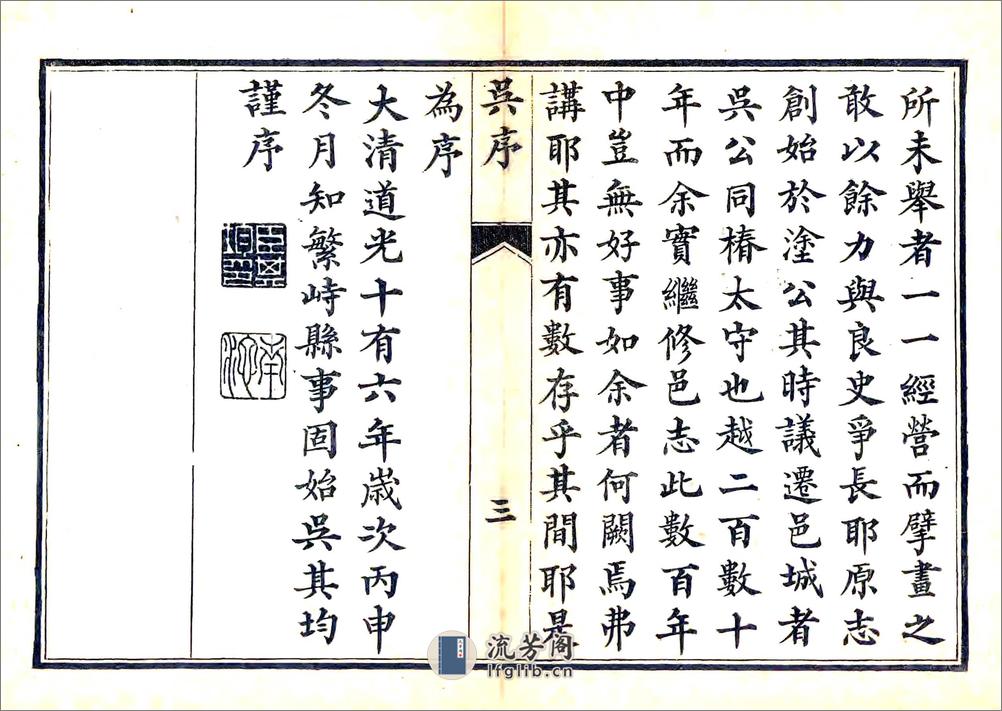 所未舉者一一經營而擘畫之
敢以餘力與良史爭長耶原志
創始於塗公其時議遷邑城者
吳公同椿太守也越二百數十
年而余實繼修邑志此數百年
中豈無好事如余者何闕焉弗
講耶其亦有數存乎其間耶是
吳序
三
為序
大清道光十有六年歲次丙申
冬月知繁峙縣事固始吳其均
謹序
流芳阁
lfglib.cn